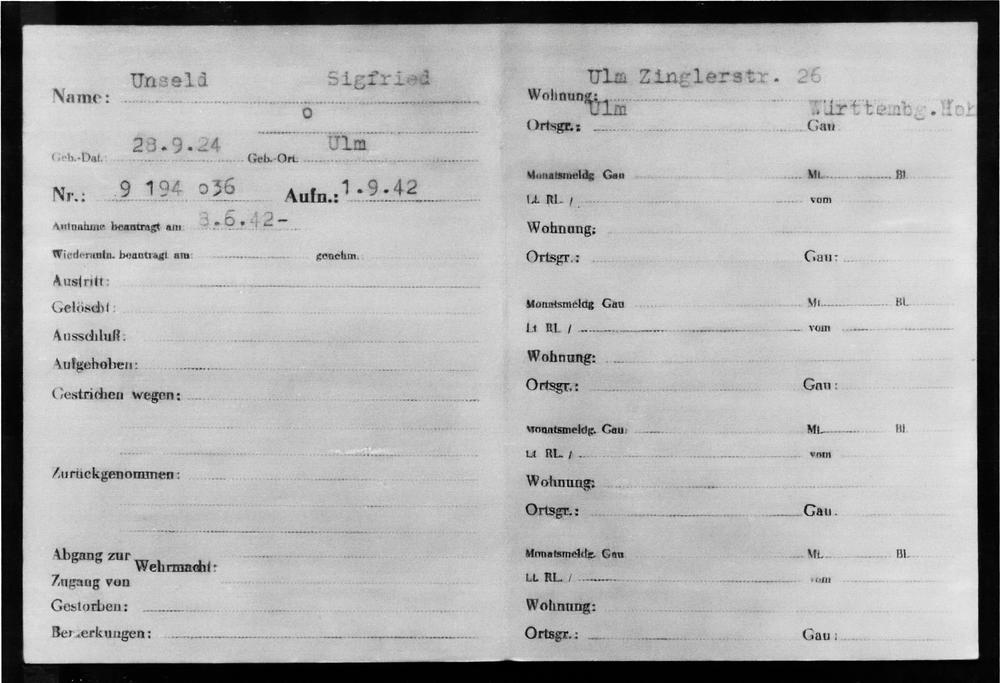 Unseld Sigfried
Name:
o
28.9.24 Ulm
Geb.-Dat.: Geb.-Ort:
Nr.: 9 194 o36 Aufn.: 1.9.42
Aufnahme beantragt am: 8.6.42-
Wiederaufn. beantragt am: genehm.
Austritt:
Gelöscht:
Ausschluß:
Aufgehoben:
Gestrichen wegen:
Zurückgenommen:
Abgang zur
Wehrmacht:
Zugang von
Gestorben:
Bemerkungen:
Ulm Zinglerstr. 26
Wohnung:
Ulm Württembg.Hoh
Ortsgr.: Gau
Monatsmeldg Gau Mt. Bl.
Lt. RL / vom
Wohnung:
Ortsgr.: Gau:
Monatsmeldg Gau Mt. Bl.
Lt RL / vom
Wohnung:
Ortsgr.: Gau:
Monatsmeldg. Gau Mt. Bl.
Lt RL. / vom
Wohnung:
Ortsgr.: Gau.
Monatsmeldg. Gau Mt. Bl.
Lt. RL. / vom
Wohnung:
Ortsgr.: Gau: